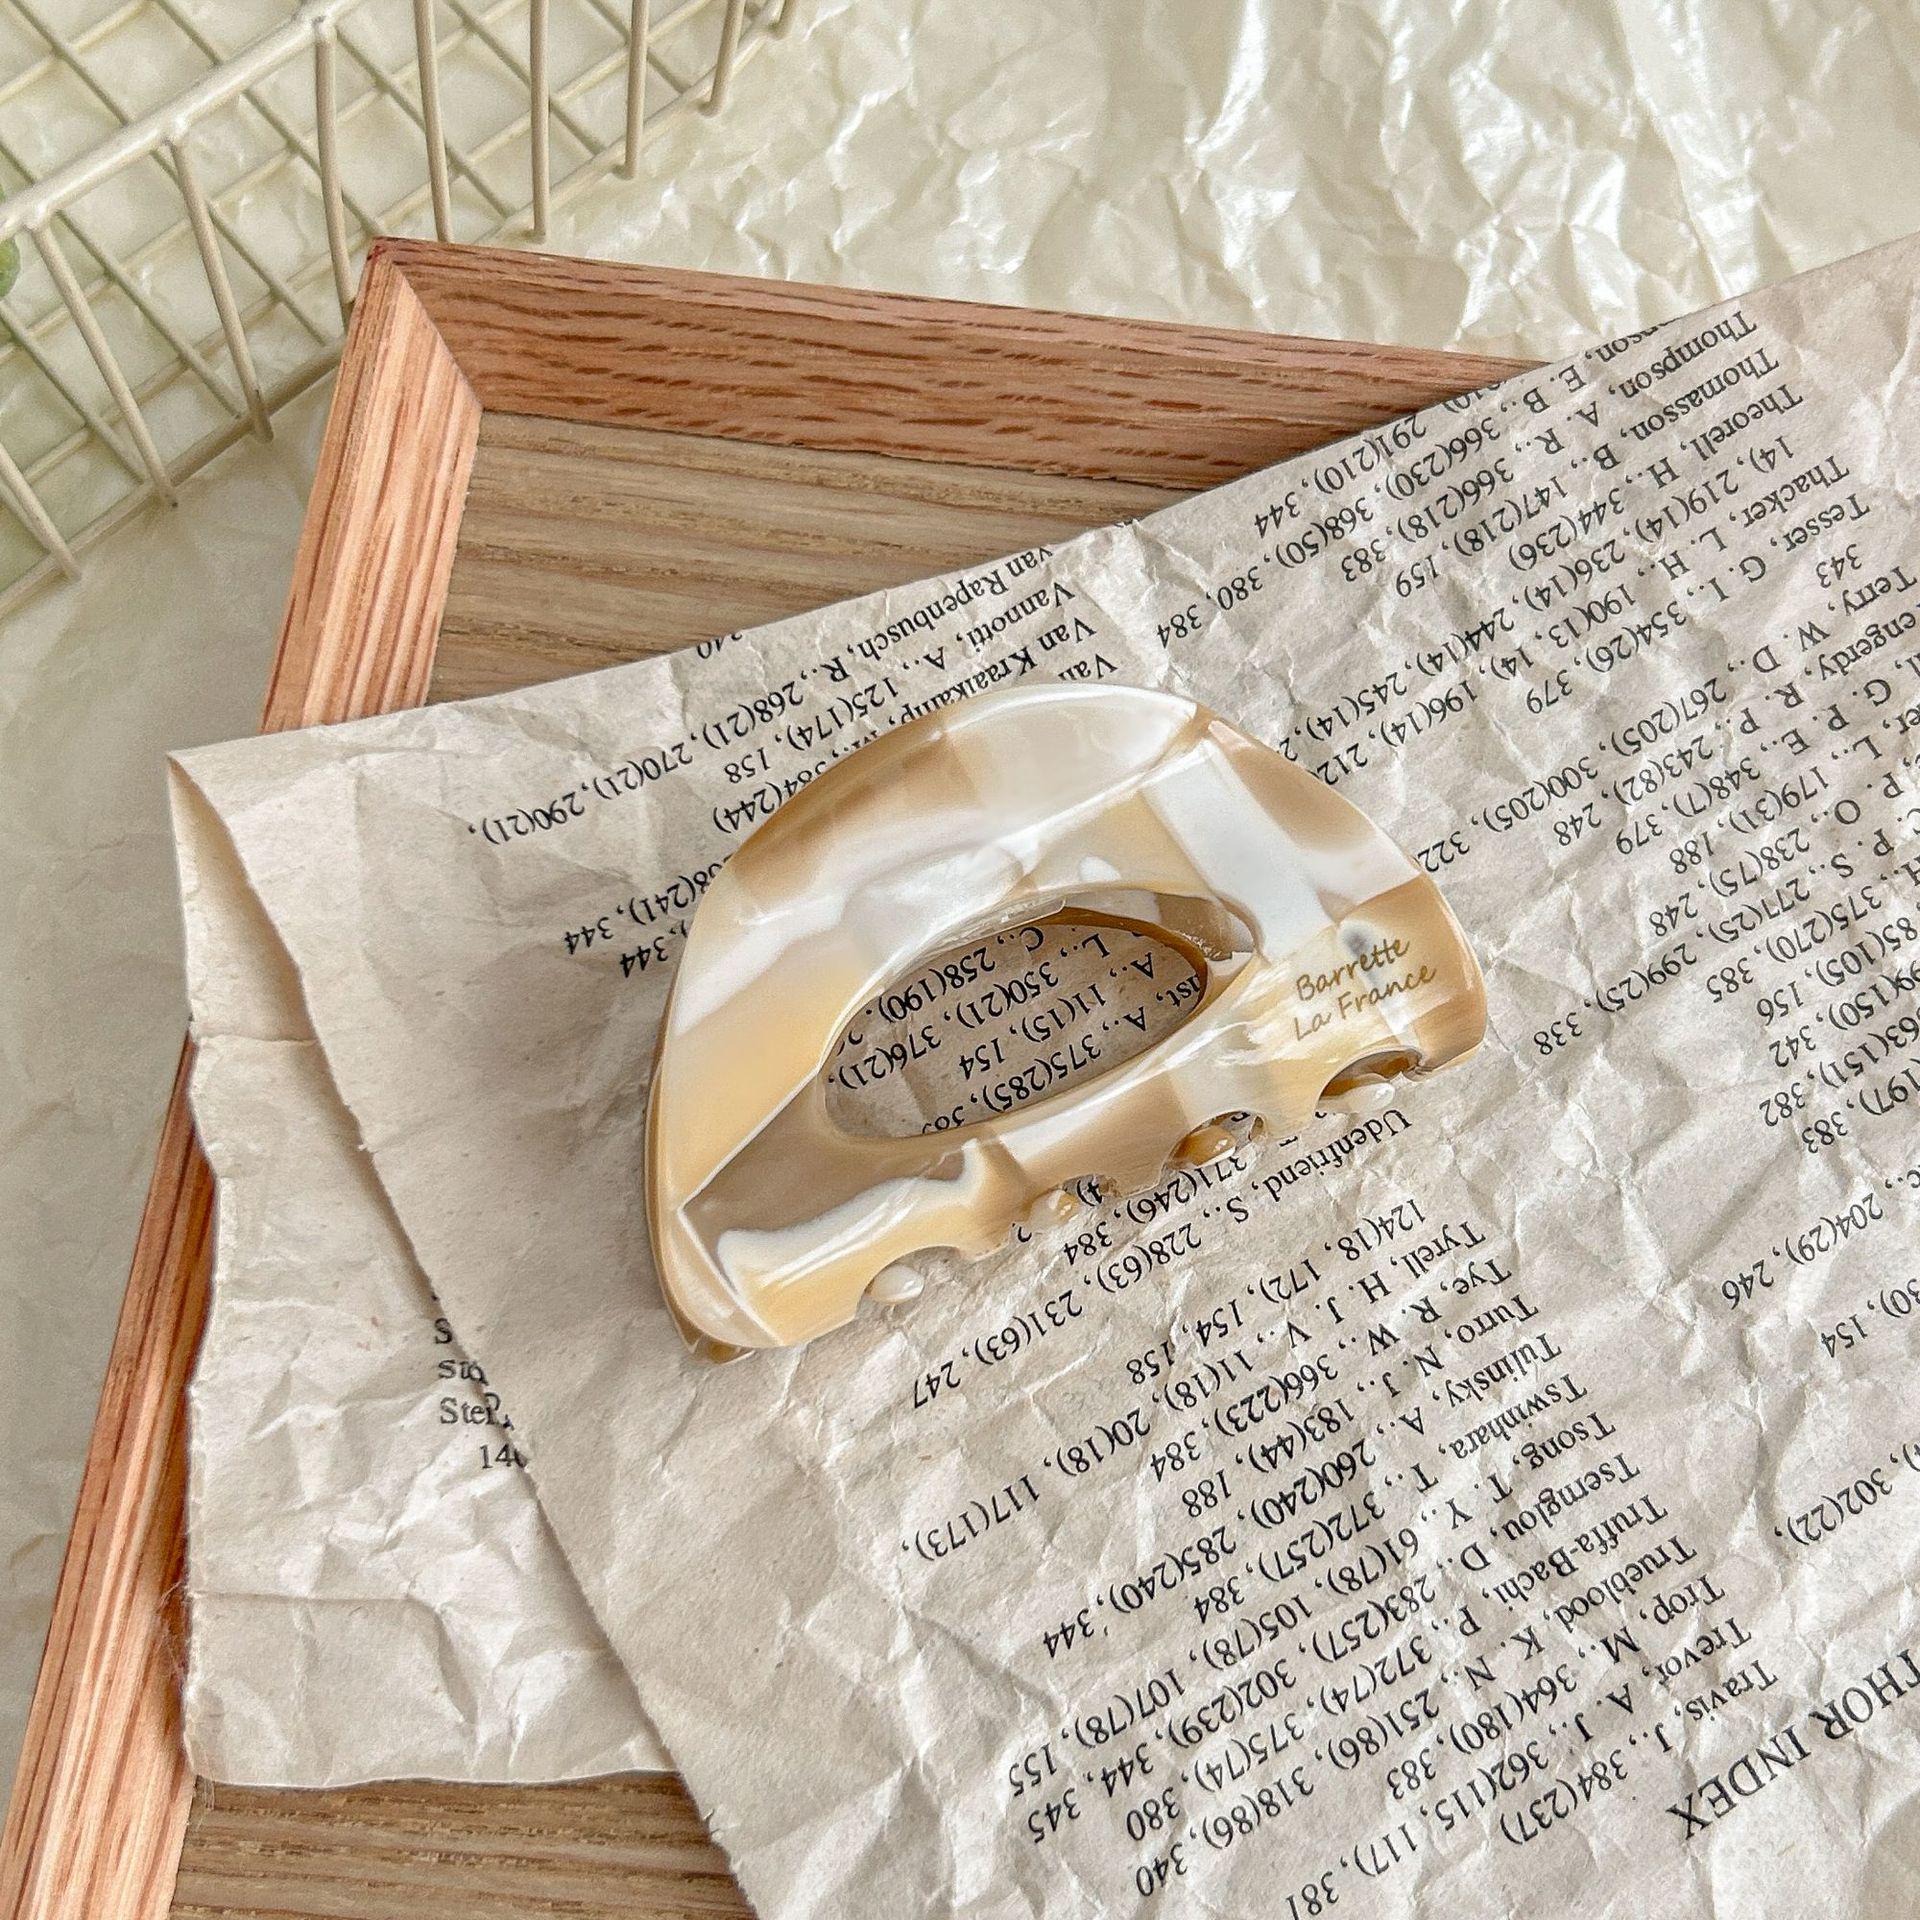 Barrette
La France
THOR INDEX
Travis, J., 384(237)
Trevor, A. J., 362(115, 117), 381
Trop, M., 364(180), 383
Trueblood, K. N., 251(86), 318(86), 340
Truffa-Bachi, P., 372(74), 375(74), 380
Tsernglou, D., 283(257), 302(239), 344, 345
Tsong, T. Y., 61(78), 105(78), 107(78), 155
Tswinhara, T., 372(257), 384
Tulinsky, A., 260(240), 285(240), 344
Turro, N. J., 183(44), 188
Tye, R. W., 366(223), 384
Tyrell, H. J. V., 11(18), 20(18), 117(173),
124(18, 172), 154, 158
Udenfriend, S., 228(63), 231(63), 247
371(246), 384
A., 375(285),
A., 11(15), 154
L., 350(21), 376(21),
C., 258(190),
344
(241), 344
Van Kraaikamp, M., 384(244)
Vannotti, A., 125(174), 158
van Rapenbusch, R., 268(21), 270(21), 290(21),
302(22),
30), 154
204(29), 246
(197), 383
63(151), 382
(150), 342
85(105), 156
375(270), 385
P. S., 271(25), 299(25), 338
P. O., 238(75), 248
L., 179(31), 188
G. P. E., 348(7), 379
engerdy, R. P., 243(82), 248
Terry, W. D., 267(205), 300(205), 322
343
Tesser, G. I., 354(26), 379
Thacker, L. H., 190(13, 14), 196(14), 212
14), 219(14), 236(14), 244(14), 245(14),
Theorell, H., 344(236)
Thomasson, B., 147(218), 159
Thompson, A. R., 366(218), 383
E. B., 366(230), 368(50), 380, 384
291(210), 344